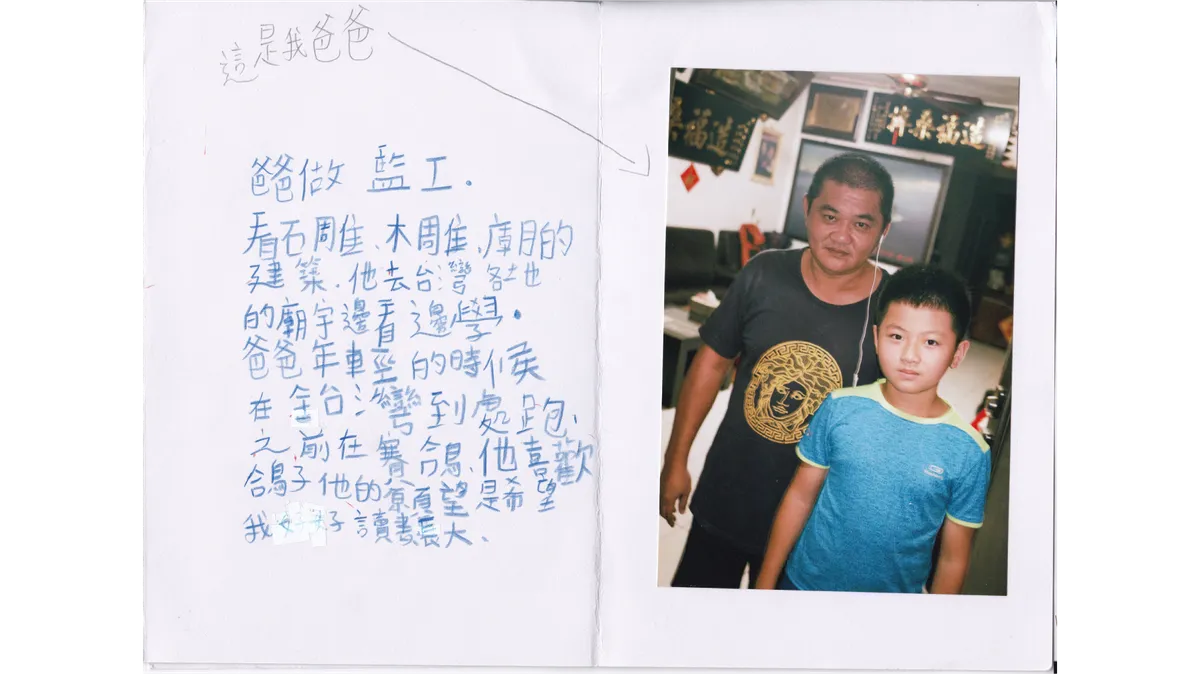 這是我爸爸
爸爸做 監工.
看石周隹、木周隹、廟的
建築.他去台灣 各土也
的廟宇邊看邊學.
爸爸年輕的時候
在全台灣到處跑、
之前在賽鴿、他喜歡
鴿子他的願望是希望
我好好讀書長大、
造福桑梓